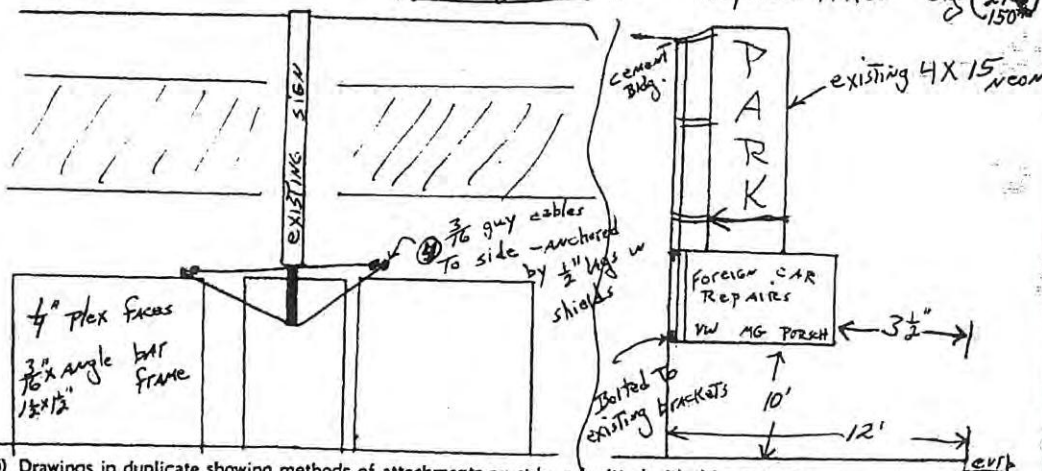 150#
existing 4 X 15 NEON
CEMENT
Bldg.
PARK
EXISTING SIGN
④ 3/16 guy cables
To side - ANCHORED
by 1/2" lags w
shields
1/4" Plex FACES
3/16" x Angle bar
1 1/2 x 1 1/2" FRAME
FOREIGN CAR
REPAIRS
VW MG PORSCH
3 1/2"
Bolted To
existing brackets
10'
12'
curb
Drawings in duplicate showing methods of attachments